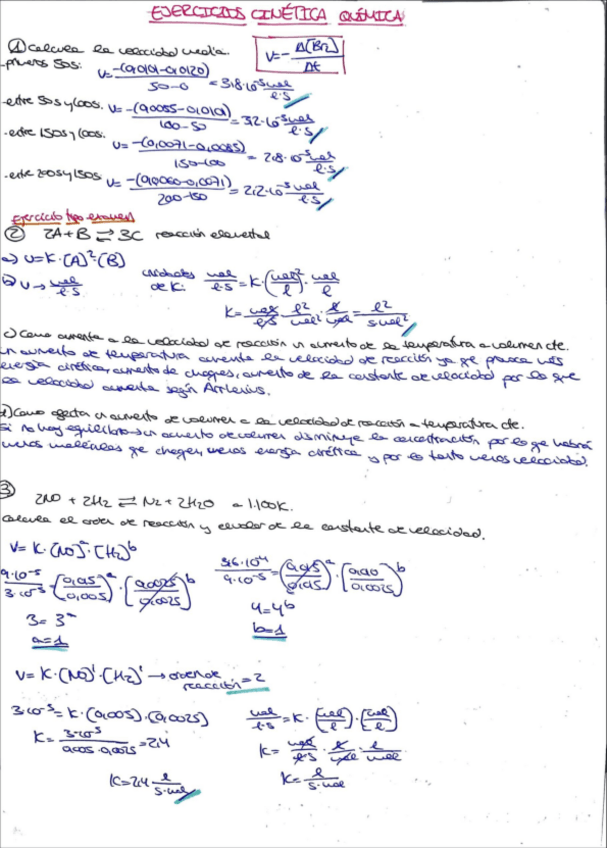 EJERCICIOS CINÉTICA QUÍMICA
① Calcula la velocidad media. V=-Δ(Br2)/Δt
-primeros 50s: v=-(0,0101-0,0120)/50-0=3,8·10^-5 mol/l·s
-entre 50s y 100s. v=-(0,0085-0,0101)/100-50=3,2·10^-5 mol/l·s
-entre 150s y 100s. v=-(0,0071-0,0085)/150-100=2,8·10^-5 mol/l·s
-entre 200s y 150s v=-(0,0060-0,0071)/200-150=2,2·10^-5 mol/l·s
Ejercicio tipo examen
② 2A+B⇌3C reacción elemental
a) v=K·(A)²·(B)
b) v→mol/l·s unidades de K: mol/l·s=K·(mol/l)²·mol/l
K=mol/l·s·l²/mol²·l/mol=l²/s mol²
c) Como aumenta a la velocidad de reacción un aumento de la temperatura a volumen cte.
un aumento de temperatura aumenta la velocidad de reacción ya que provoca más
energía cinética, aumento de choques, aumento de la constante de velocidad por lo que
la velocidad aumenta según Arrhenius.
d) Como afecta un aumento de volumen a la velocidad de reacción a temperatura cte.
si no hay equilibrio un aumento de volumen disminuye la concentración por lo que habrá
menos moléculas que choquen, menos energía cinética y por lo tanto menos velocidad.
③
2NO + 2H2 ⇌ N2 + 2H2O a 1.100K.
Calcula el orden de reacción y el valor de la constante de velocidad.
V=K·(NO)^a·[H2]^b
9·10^-5/3·10^-5=(0,015/0,005)^a·(0,0025/0,0025)^b 3,6·10^-4/9·10^-5=(0,015/0,015)^a·(0,010/0,0025)^b
3=3^a 4=4^b
a=1 b=1
V=K·(NO)^1·(H2)^1→orden de reacción=2
3·10^-5=K·(0,005)·(0,0025) mol/l·s=K·(mol/l)·(mol/l)
K=3·10^-5/0,005·0,0025=2,4 K=mol/l·s·l/mol·l/mol
K=2,4 l/s·mol K=l/s·mol